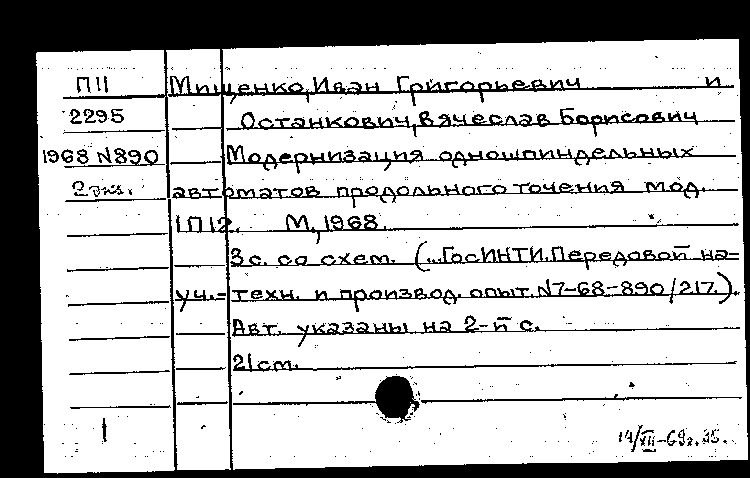 П11 Мищенко, Иван Григорьевич и
2295 Останкович, Вячеслав Борисович
1968 N890 Модернизация одношпиндельных
2 экз. автоматов продольного точения мод.
1П12. М., 1968.
3 с. со схем. (...ГосИНТИ. Передовой на-
уч.-техн. и производ. опыт. N7-68-890/217.).
Авт. указаны на 2-й с.
21 см.
1 14/XII-69г. 35.